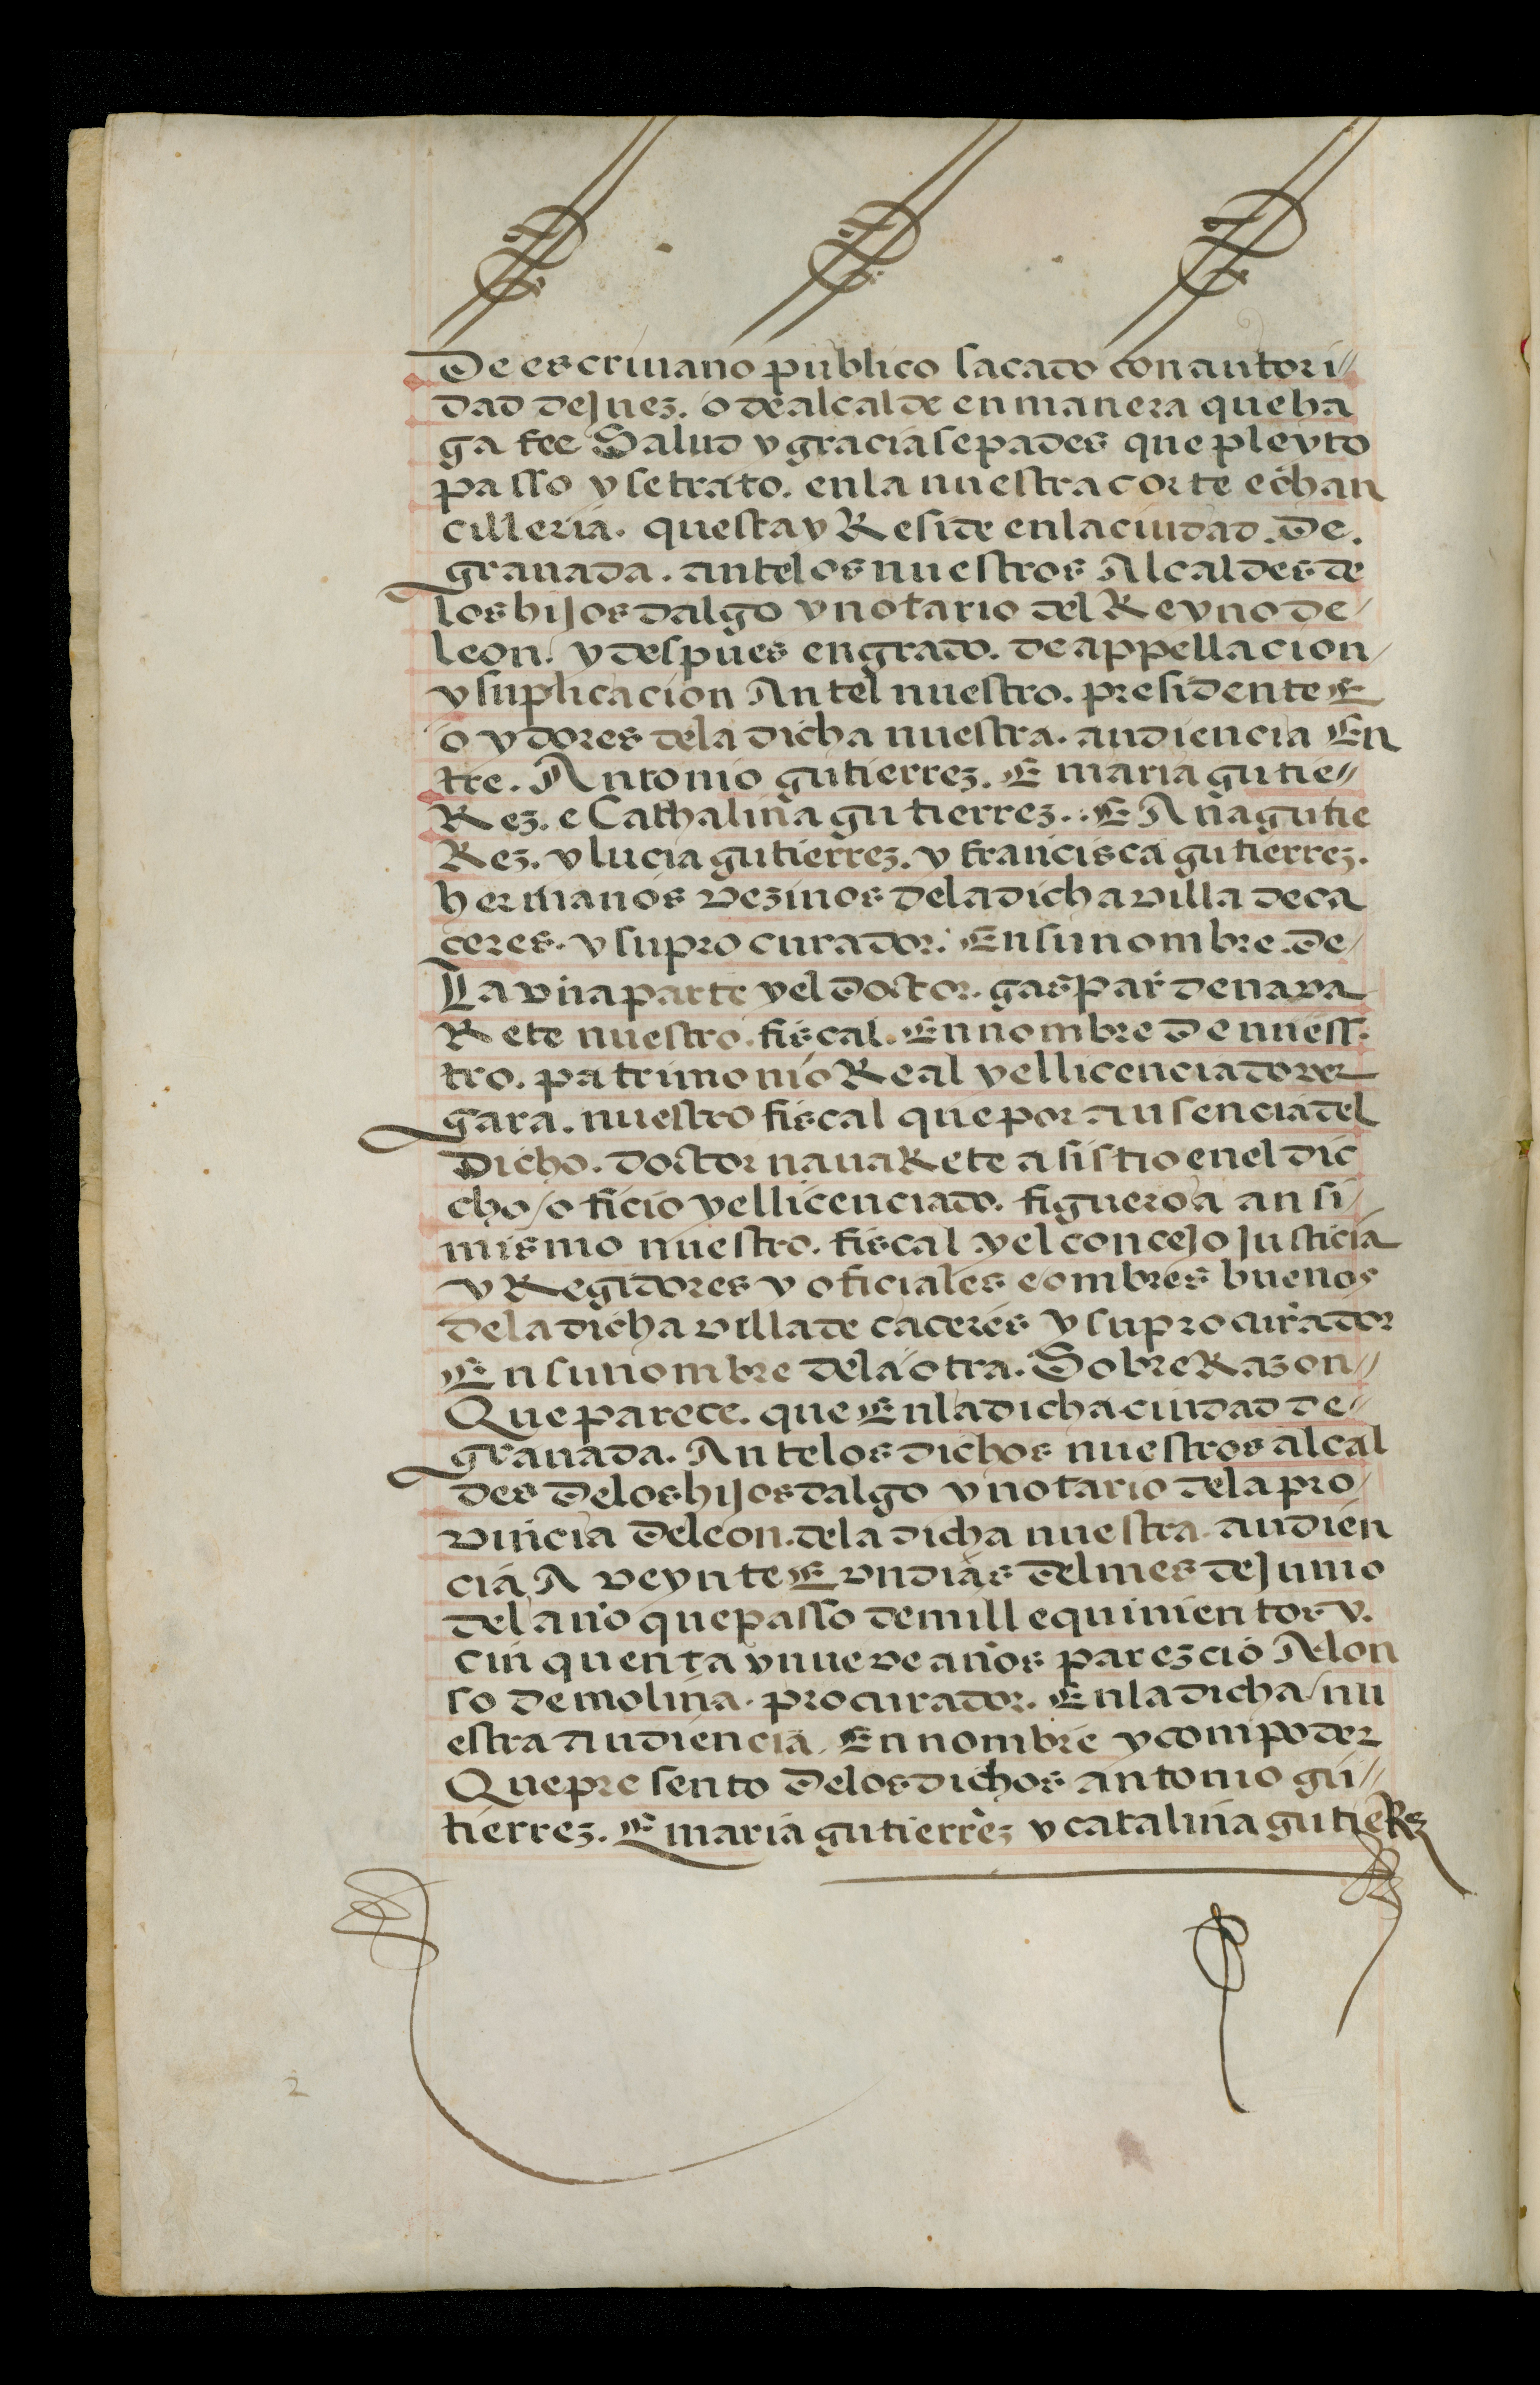 De escriuano publico sacado con autori//
dad de Juez. o de alcalde en manera que ha
ga fee Salud y gracia sepades que pleyto
passo y se trato. en la nuestra corte e chan
cilleria. questa y Reside en la ciudad. De.
granada. ante los nuestros Alcaldes de
los hijosdalgo y notario del Reyno de/
leon. y despues en grado. de appellacion/
y suplicacion Antel nuestro. presidente E
oydores de la dicha nuestra. audiencia En
tre. Antonio gutierrez. E maria gutie//
Rez. e Cathalina gutierrez.. E Ana gutie
Rez. y lucia gutierrez. y francisca gutierrez.
hermanos vezinos de la dicha villa de ca
ceres. y su procurador. En su nombre. De/
La vna parte y el Doctor. gaspar de nava
Rete nuestro. fiscal. En nombre De nuess.
tro. patrimonio Real y el licenciado ver
gara. nuestro fiscal que por ausencia del
Dicho. doctor nauaRete asistio en el dic
cho/oficio y el licenciado. figueroa ansi/
mismo nuestro. fiscal y el concejo Justicia
y Regidores y oficiales e ombres buenos
de la dicha villa de caceres y su procurador
En su nombre de la otra. Sobre Razon//
Que parece. que En la dicha ciudad de//
granada. Ante los dichos nuestros alcal
des De los hijosdalgo y notario de la pro/
vincia De leon. de la dicha nuestra. audien
cia A veynte E vn dias Del mes de Junio
del año que passo de mill e quinientos y.
cinquenta y nueve años parezcio Alon
so de molina. procurador. En la dicha/nu
estra audiencia. En nombre y con poder
Que presento De los dichos antonio gu//
tierrez. E maria gutierrez y catalina gutieRez
2